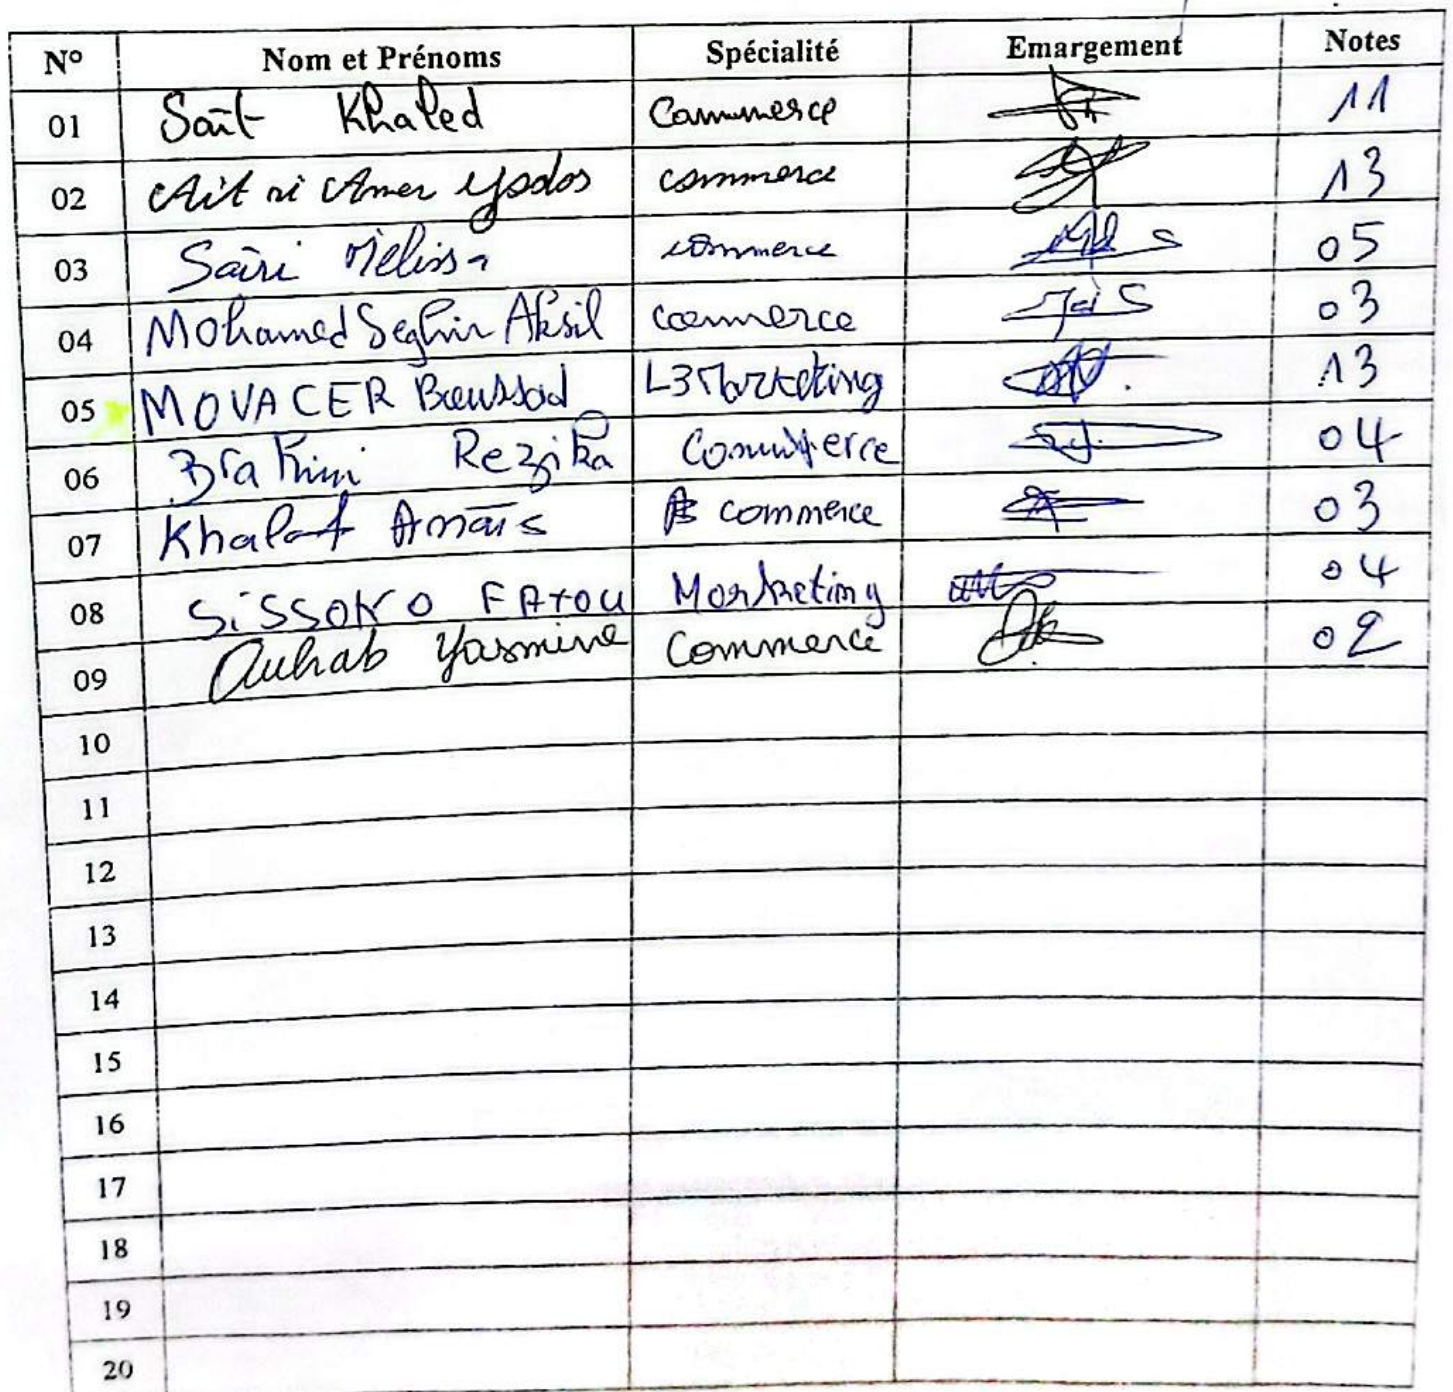 N° Nom et Prénoms Spécialité Emargement Notes
01 Saït Khaled Commerce 11
02 Ait ni Amer commerce 13
03 Saïri Melissa commerce 05
04 Mohamed Seghir Aksil commerce 03
05 MOUACER Boussad L3 Marketing 13
06 Brahimi Rezika Commerce 04
07 Khalaf Anaïs commerce 03
08 SiSSOKO FATOU Marketing 04
09 Ouhab Yasmine Commerce 02
10
11
12
13
14
15
16
17
18
19
20